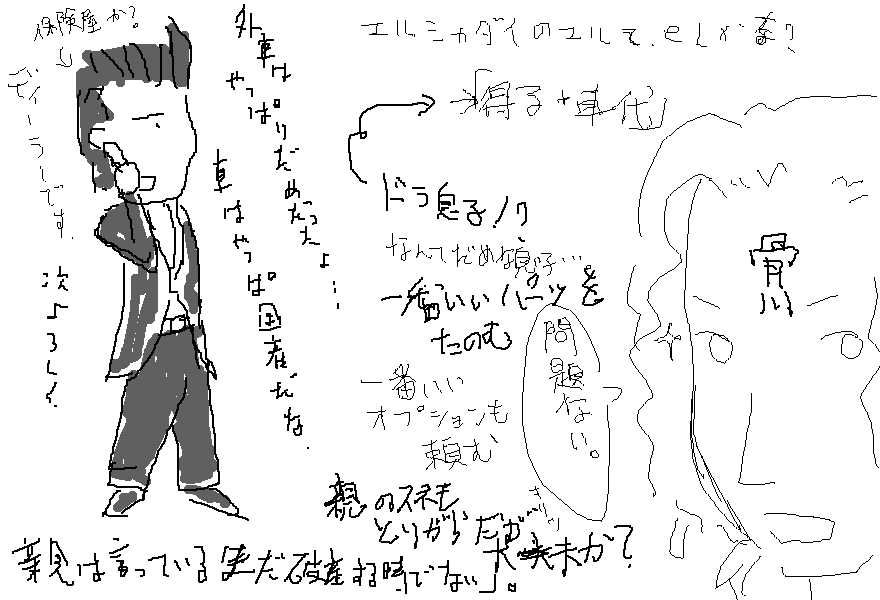 保険屋か?
ディーラーです。
次よろしく。
外車は
やっぱりだめだったよ…
車はやっぱ国産だな。
エルシャダイのエルて、eLが
「得る+車代」
ドラ息子!!?
なんてだめな息子…
一番いいパーツを
たのむ
一番いい
オプションも
頼む
問題ない。
キリッ
骨
親のスネも
とりがらだが
大丈夫か?
親は言っている まだ破産する時でない」。